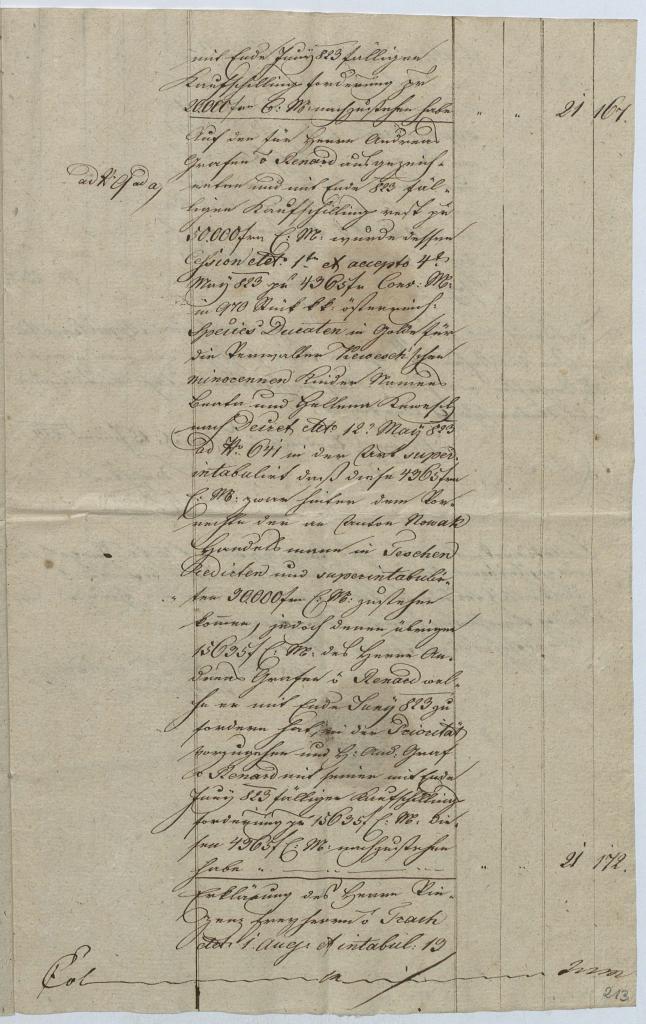 mit Ende Juny 823 fälligen
Kaufschillingsforderung pr
20.000 frn C: M: nachzustehen habe " " 21 167.
Auf den für Herrn Andreas
Grafen v Renard ausgezeich-
ad N. 9 ad a) neten und mit Ende 823 fäl-
ligen Kaufschilling rest pr
50.000 frn C: M: wurde dessen
Cession ddto 1ten et accepto 4ten
May 823 pr 4365 fr Conv: M:
in 970 Stük kk: österreich:
Species Ducaten in Golde für
die Verwalter Kewesch'schen
minorennen Kinder Namens
Beata und Hellena Kewesch
nach Decret ddto 12. May 823
ad Nr. 641 in der Art super-
intabulirt daß diese 4365 frn
C: M: zwar hinter dem Vor-
rechte der an Anton Nowak
Handelsmann in Teschen
cedirten und superintabulir-
ten 30.000 frn C: M: zustehen
kommen, jedoch denen übrigen
15635 f C: M: des Herrn An-
dreas Grafen v Renard wel-
che er mit Ende Juny 823 zu
fordern hat, in der Priorität
vorzugehen und H: And: Graf
v Renard mit seiner mit Ende
Juny 823 fälligen Kaufschillings
forderung pr 15635 f C: M: die-
sen 4365 f C: M: nachzustehen
habe " " " 21 172.
Erklärung des Herrn Vin-
zenz Freyherrn v Trach
ddto 1. Aug: et intabul: 13
213